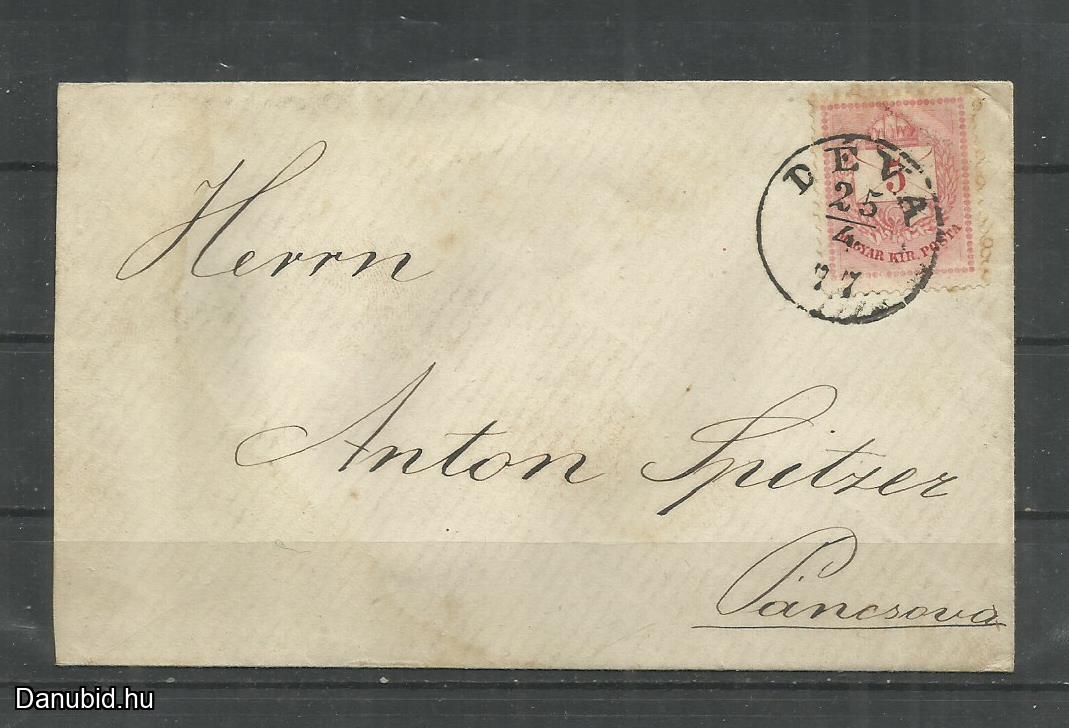 Herrn
Anton Spitzer
Páncsova
DEVA
25
4
77
5
MAGYAR KIR. POSTA
Danubid.hu